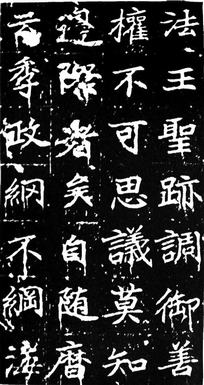 法王聖跡調御善
權不可思議莫知
邊際者矣自随曆
告季政網不綱海